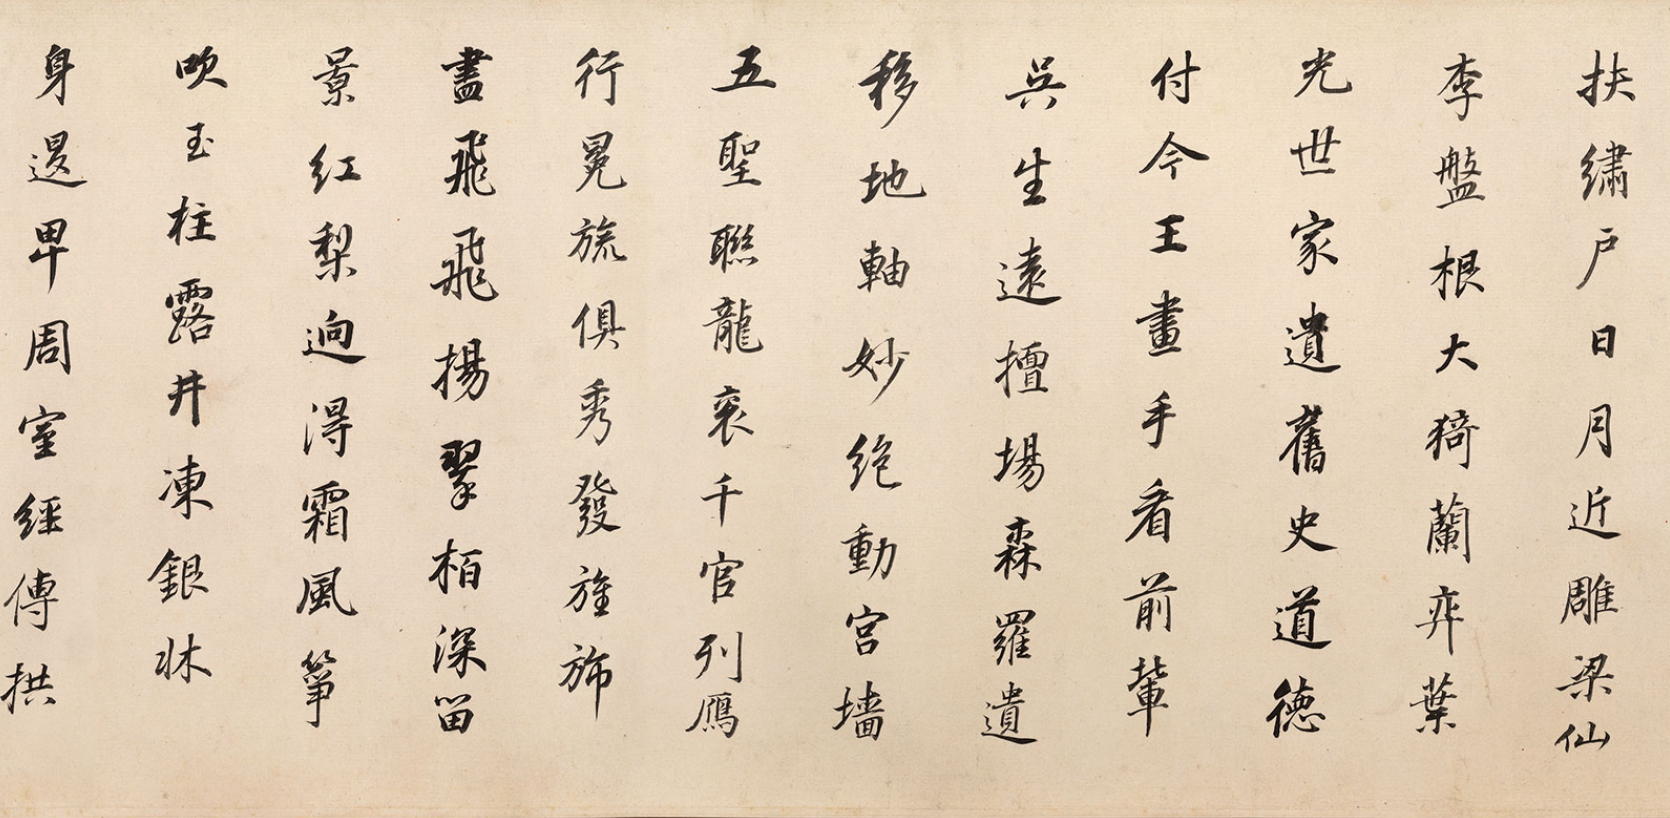 扶繡户日月近雕梁仙
李盤根大猗蘭弈葉
光世家遺舊史道德
付今王畫手看前輩
吳生遠擅場森羅遺
移地軸妙絶動宫墻
五聖聯龍衮千官列鴈
行冕旒俱秀發旌旆
盡飛飛揚翠柏深留
景紅梨迥得霜風箏
吹玉柱露井凍銀牀
身退卑周室經傳拱